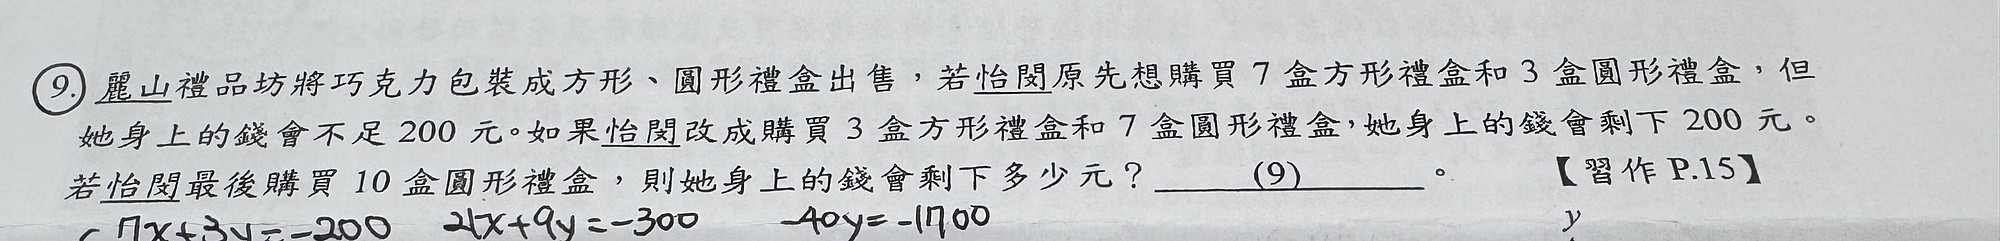 9. 麗山禮品坊將巧克力包裝成方形、圓形禮盒出售，若怡閔原先想購買 7 盒方形禮盒和 3 盒圓形禮盒，但
她身上的錢會不足 200 元。如果怡閔改成購買 3 盒方形禮盒和 7 盒圓形禮盒，她身上的錢會剩下 200 元。
若怡閔最後購買 10 盒圓形禮盒，則她身上的錢會剩下多少元？ (9) 。 【習作 P.15】
7x+3y=-200 21x+9y=-300 -40y=-1700 y